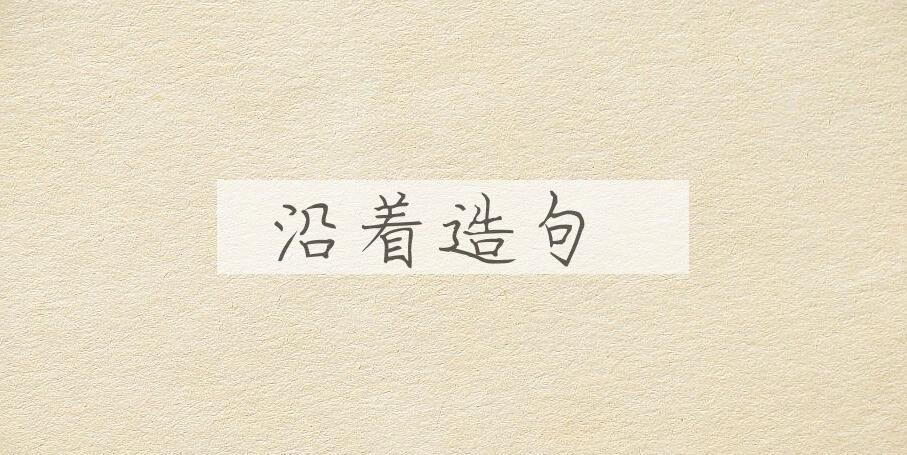 沿着造句